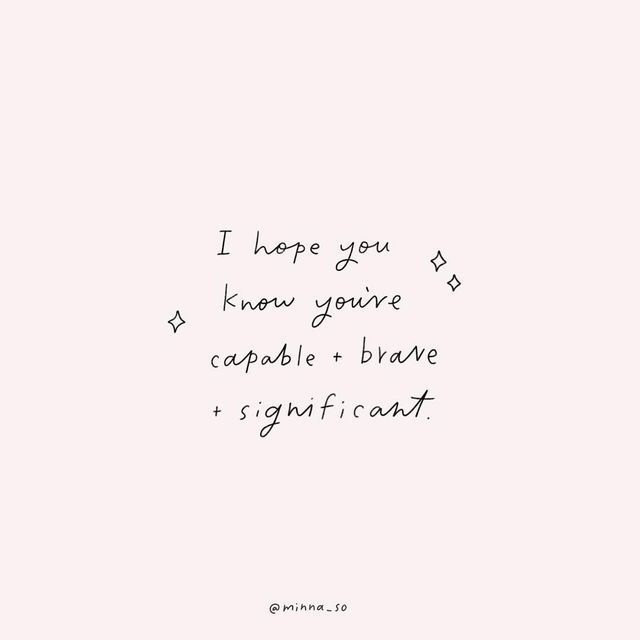 I hope you
know you're
capable + brave
+ significant.
@minna_so